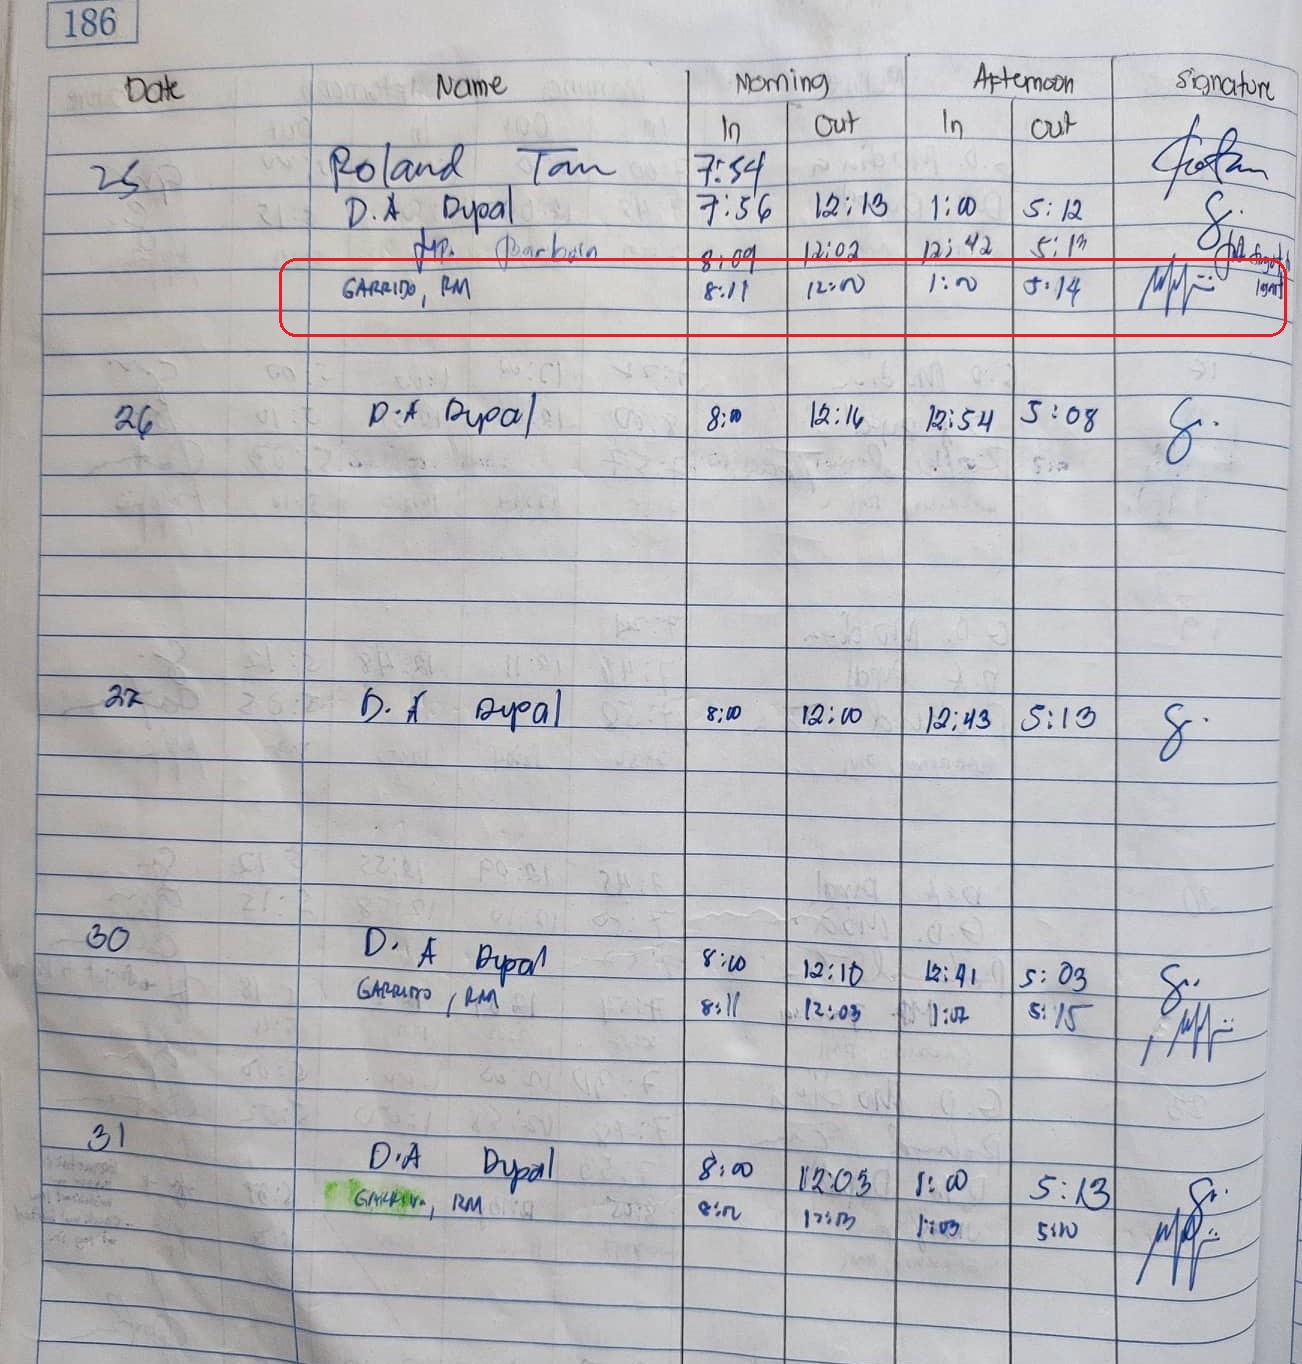 186
Date Name Morning Afternoon Signature
In Out In Out
25 Roland Tan 7:54
D.A Dypal 7:56 12:13 1:00 5:12
8:09 12:02 12:42 5:13
GARRIDO, RM 8:11 12:00 1:00 5:14
26 D.A Dypal 8:00 12:16 12:54 5:08
27 D.A Dypal 8:00 12:00 12:43 5:13
30 D.A Dypal 8:00 12:10 12:41 5:03
GARRIDO, RM 8:11 12:03 1:02 5:15
31 D.A Dypal 8:00 12:03 1:00 5:13
GARRIDO, RM 12:03 1:03 5:10